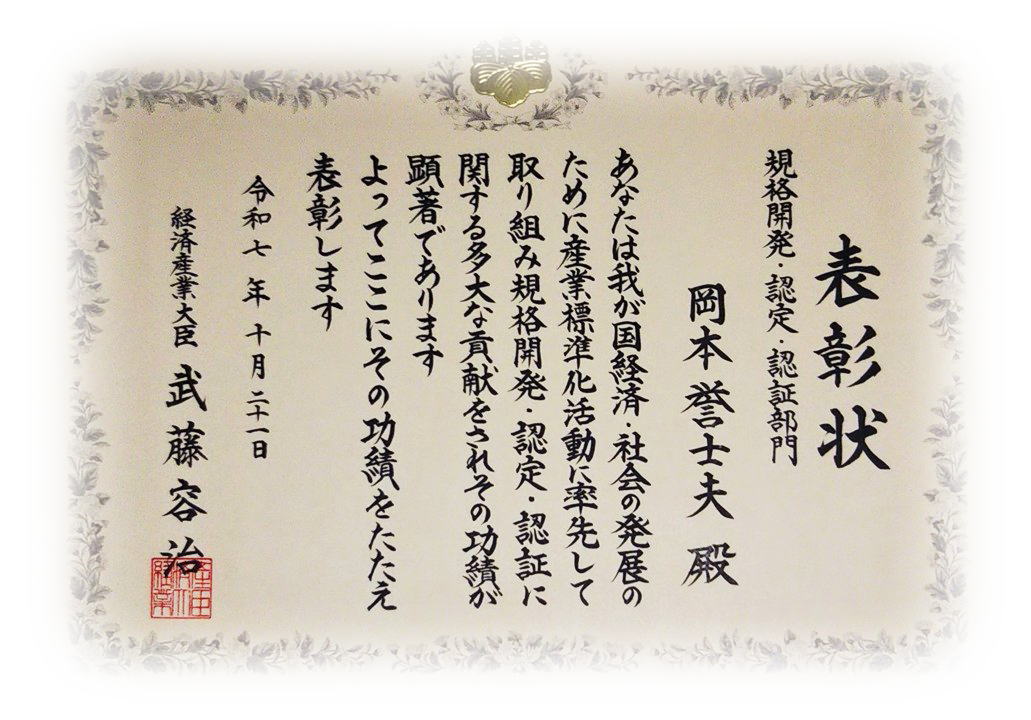 表彰状
規格開発・認定・認証部門
岡本誉士夫 殿
あなたは我が国経済・社会の発展の
ために産業標準化活動に率先して
取り組み規格開発・認定・認証に
関する多大な貢献をされその功績が
顕著であります
よってここにその功績をたたえ
表彰します
令和七年十月二十一日
経済産業大臣 武藤容治